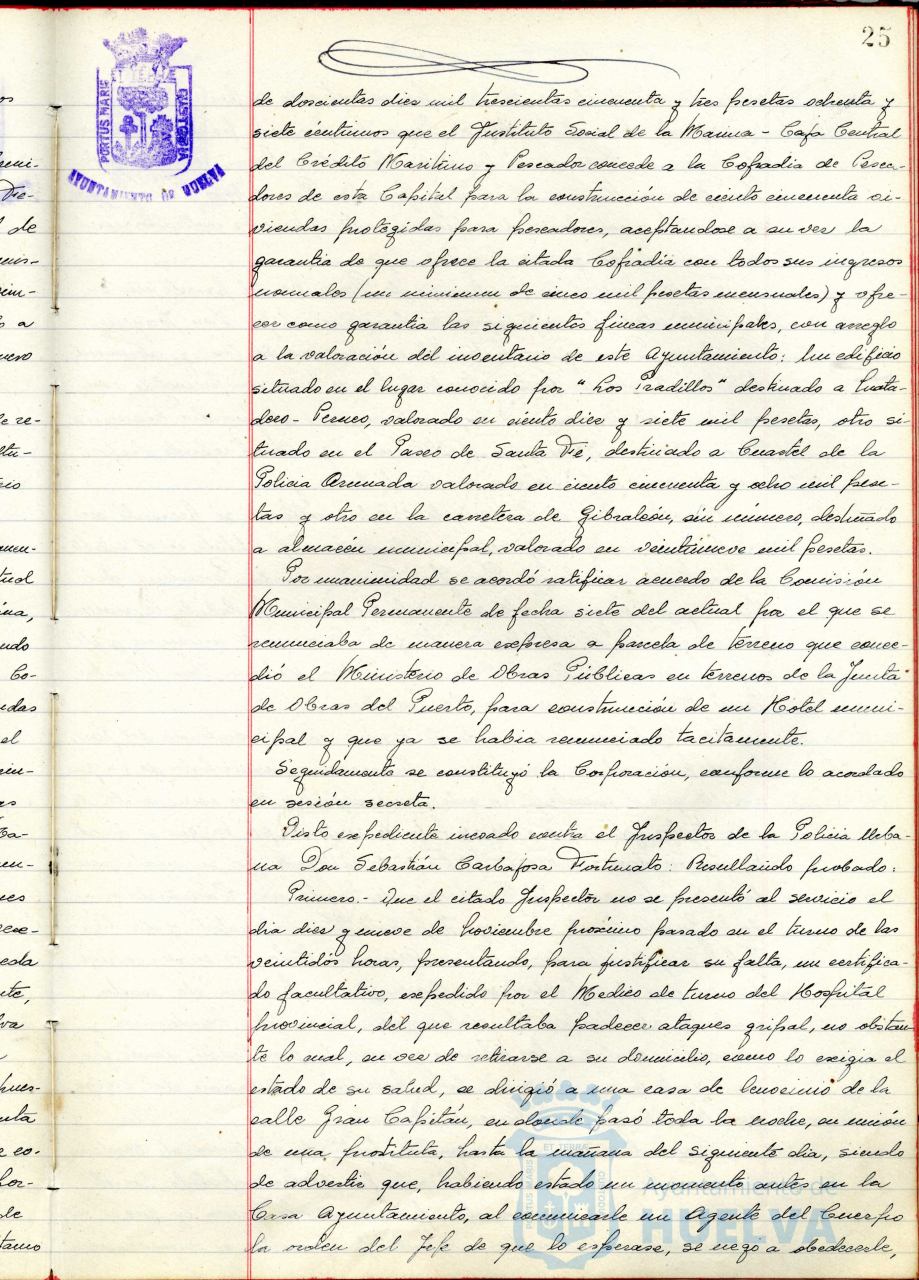 25
PORTUS MARIS
ET TERRAE
CUSTODIA
AYUNTAMIENTO DE HUELVA
de doscientas diez mil trescientas cincuenta y tres pesetas ochenta y
siete céntimos que el Instituto Social de la Marina - Caja Central
del Crédito Maritimo y Pescador concede a la Cofradia de Pesca-
dores de esta Capital para la construcción de ciento cincuenta vi-
viendas protegidas para pescadores, aceptandose a su vez la
garantia de que ofrece la citada Cofradia con todos sus ingresos
normales (un minimun de cinco mil pesetas mensuales) y ofre-
cer como garantia las siguientes fincas municipales, con arreglo
a la valoración del inventario de este Ayuntamiento: Un edificio
situado en el lugar conocido por "Los Pradillos" destinado a Mata-
dero-Perneo, valorado en ciento diez y siete mil pesetas, otro si-
tuado en el Paseo de Santa Fé, destinado a Cuartel de la
Policia Armada valorado en ciento cincuenta y ocho mil pese-
tas y otro en la carretera de Gibraleón, sin número, destinado
a almacén municipal, valorado en veintinueve mil pesetas.
Por unanimidad se acordó ratificar acuerdo de la Comisión
Municipal Permanente de fecha siete del actual por el que se
renunciaba de manera expresa a parcela de terreno que conce-
dió el Ministerio de Obras Públicas en terrenos de la Junta
de Obras del Puerto, para construcción de un Hotel muni-
cipal y que ya se habia renunciado tacitamente.
Seguidamente se constituyó la Corporación, conforme lo acordado
en sesión secreta.
Visto expediente incoado contra el Inspector de la Policia Urba-
na Don Sebastián Carbajosa Fortunato: Resultando probado:
Primero.- Que el citado Inspector no se presentó al servicio el
dia diez y nueve de Noviembre próximo pasado en el turno de las
veintidós horas, presentando, para justificar su falta, un certifica-
do facultativo, expedido por el Medico de turno del Hospital
provincial, del que resultaba padecer ataques gripal, no obstan-
te lo cual, en vez de retirarse a su domicilio, como lo exigia el
estado de su salud, se dirigió a una casa de lenocinio de la
calle Gran Capitán, en donde pasó toda la noche, en unión
de una prostituta, hasta la mañana del siguiente dia, siendo
de advertir que, habiendo estado un momento antes en la
Casa Ayuntamiento, al comunicarle un Agente del Cuerpo
la orden del Jefe de que lo esperase, se negó a obedecerle,
Ayuntamiento de
HUELVA